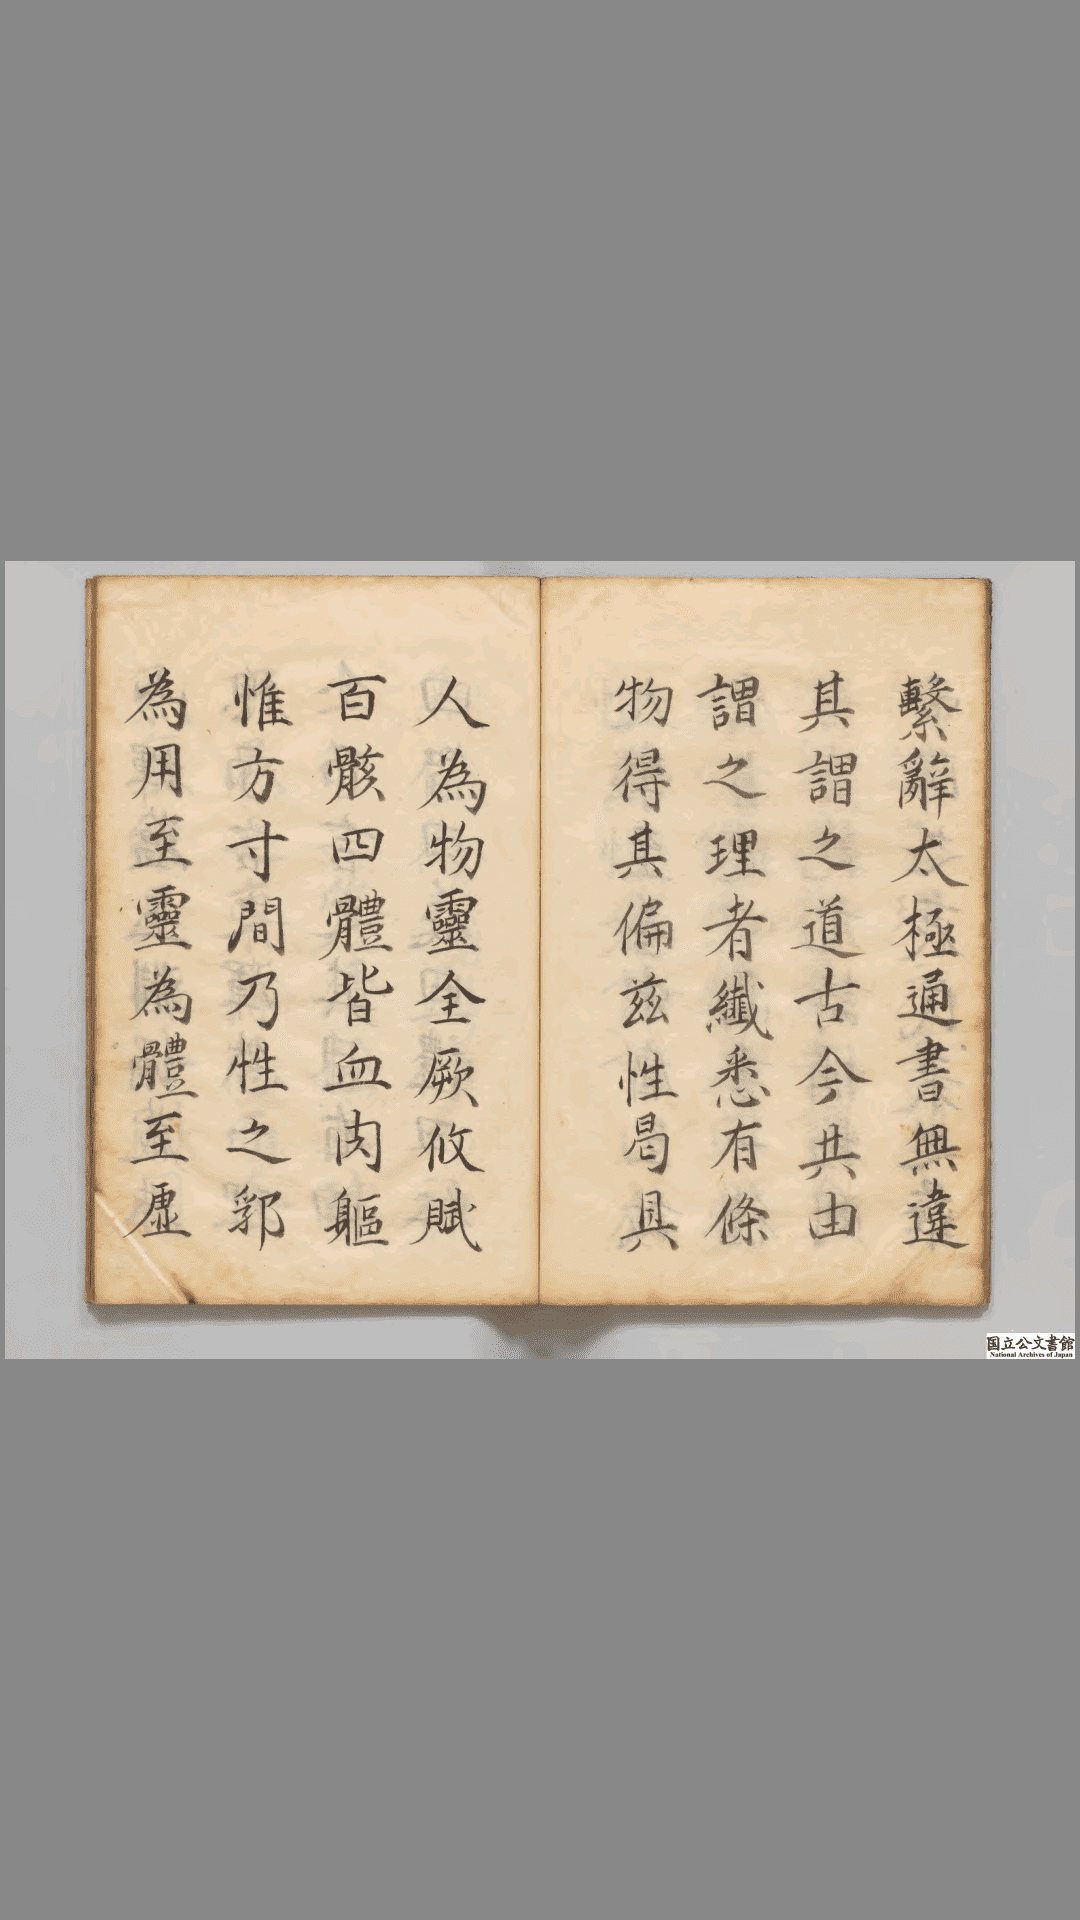 繫辭太極通書無違
其謂之道古今共由
謂之理者纖悉有條
物得其偏茲性曷具
人為物靈全厥攸賦
百骸四體皆血肉軀
惟方寸間乃性之郛
為用至靈為體至虛
国立公文書館
National Archives of Japan